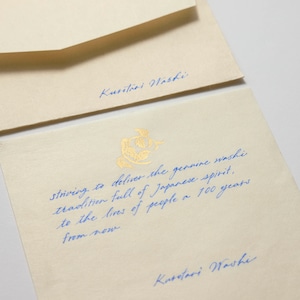 Kuretani Washi
striving to deliver the genuine washi
tradition full of Japanese spirit.
to the lives of people a 100 years
from now
Kuretani Washi